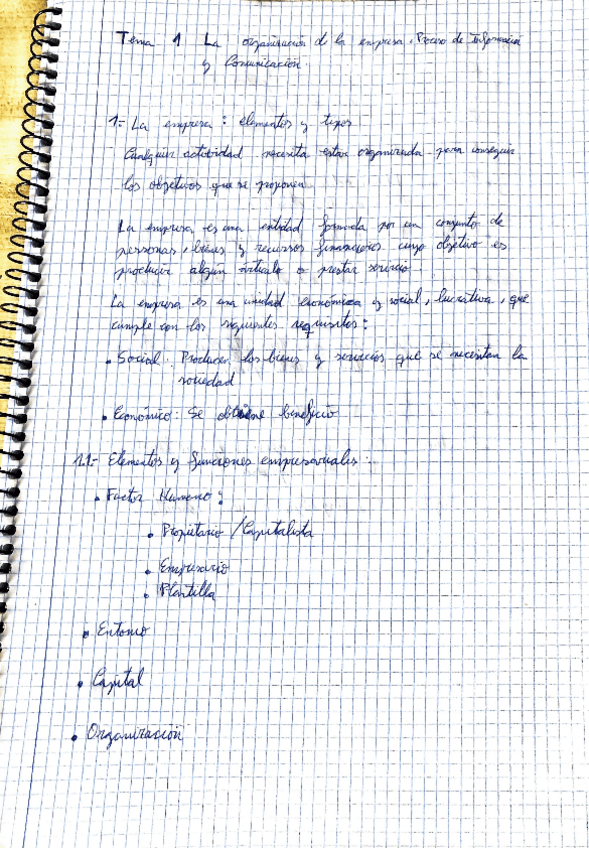 Tema 1 La organización de la empresa. Proceso de Información
y Comunicación.
1.- La empresa: elementos y tipos
Cualquier actividad necesita estar organizada para conseguir
los objetivos que se proponen.
La empresa es una entidad formada por un conjunto de
personas, bienes y recursos financieros cuyo objetivo es
producir algún artículo o prestar servicio.
La empresa es una unidad económica y social, lucrativa, que
cumple con los siguientes requisitos:
• Social: Producer los bienes y servicios que se necesitan la
sociedad
• Económico: Se obtiene beneficio
1.1- Elementos y funciones empresariales:
• Factor Humano:
• Propietario / Capitalista
• Empresario
• Plantilla
• Entorno
• Capital
• Organización